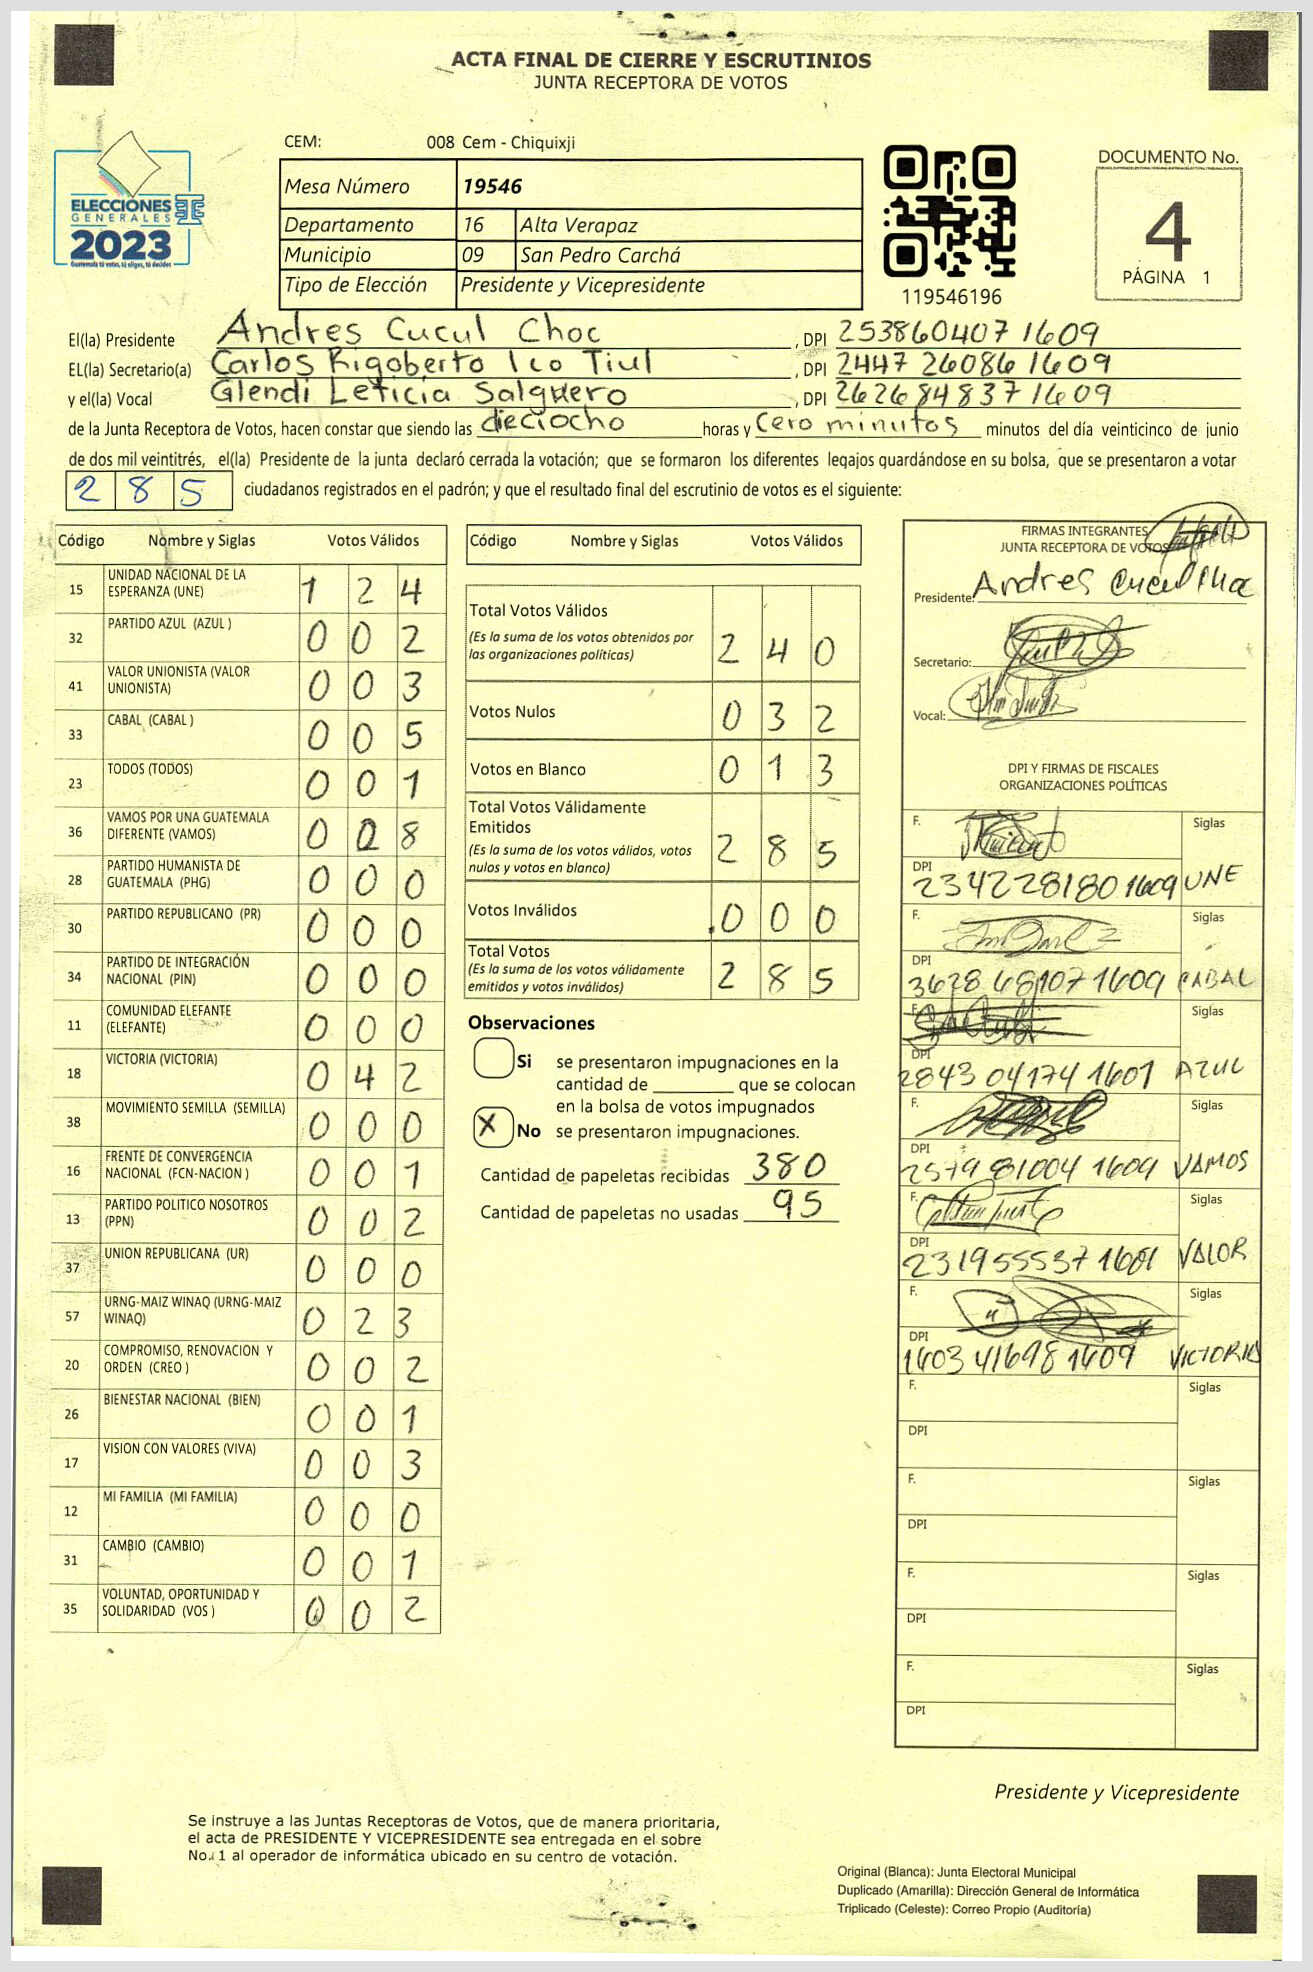 ACTA FINAL DE CIERRE Y ESCRUTINIOS
JUNTA RECEPTORA DE VOTOS
CEM: 008 Cem - Chiquixji
ELECCIONES
GENERALES
2023
Guatemala tú votas, tú eliges, tú decides
Mesa Número 19546
Departamento 16 Alta Verapaz
Municipio 09 San Pedro Carchá
Tipo de Elección Presidente y Vicepresidente
119546196
DOCUMENTO No.
4
PÁGINA 1
El(la) Presidente Andres Cucul Choc , DPI 2538604071609
EL(la) Secretario(a) Carlos Rigoberto Ico Tiul , DPI 2447 26086 1609
y el(la) Vocal Glendi Leticia Salguero , DPI 2626848371609
de la Junta Receptora de Votos, hacen constar que siendo las dieciocho horas y Cero minutos minutos del día veinticinco de junio
de dos mil veintitrés, el(la) Presidente de la junta declaró cerrada la votación; que se formaron los diferentes legajos guardándose en su bolsa, que se presentaron a votar
285 ciudadanos registrados en el padrón; y que el resultado final del escrutinio de votos es el siguiente:
Código Nombre y Siglas Votos Válidos
15 UNIDAD NACIONAL DE LA ESPERANZA (UNE) 1 2 4
32 PARTIDO AZUL (AZUL ) 0 0 2
41 VALOR UNIONISTA (VALOR UNIONISTA) 0 0 3
33 CABAL (CABAL ) 0 0 5
23 TODOS (TODOS) 0 0 1
36 VAMOS POR UNA GUATEMALA DIFERENTE (VAMOS) 0 2 8
28 PARTIDO HUMANISTA DE GUATEMALA (PHG) 0 0 0
30 PARTIDO REPUBLICANO (PR) 0 0 0
34 PARTIDO DE INTEGRACIÓN NACIONAL (PIN) 0 0 0
11 COMUNIDAD ELEFANTE (ELEFANTE) 0 0 0
18 VICTORIA (VICTORIA) 0 4 2
38 MOVIMIENTO SEMILLA (SEMILLA) 0 0 0
16 FRENTE DE CONVERGENCIA NACIONAL (FCN-NACION ) 0 0 1
13 PARTIDO POLITICO NOSOTROS (PPN) 0 0 2
37 UNION REPUBLICANA (UR) 0 0 0
57 URNG-MAIZ WINAQ (URNG-MAIZ WINAQ) 0 2 3
20 COMPROMISO, RENOVACION Y ORDEN (CREO ) 0 0 2
26 BIENESTAR NACIONAL (BIEN) 0 0 1
17 VISION CON VALORES (VIVA) 0 0 3
12 MI FAMILIA (MI FAMILIA) 0 0 0
31 CAMBIO (CAMBIO) 0 0 1
35 VOLUNTAD, OPORTUNIDAD Y SOLIDARIDAD (VOS ) 0 0 2
Código Nombre y Siglas Votos Válidos
Total Votos Válidos
(Es la suma de los votos obtenidos por
las organizaciones políticas) 2 4 0
Votos Nulos 0 3 2
Votos en Blanco 0 1 3
Total Votos Válidamente
Emitidos
(Es la suma de los votos válidos, votos
nulos y votos en blanco) 2 8 5
Votos Inválidos 0 0 0
Total Votos
(Es la suma de los votos válidamente
emitidos y votos inválidos) 2 8 5
Observaciones
Si se presentaron impugnaciones en la
cantidad de ________ que se colocan
en la bolsa de votos impugnados
X No se presentaron impugnaciones.
Cantidad de papeletas recibidas 380
Cantidad de papeletas no usadas 95
FIRMAS INTEGRANTES
JUNTA RECEPTORA DE VOTOS
Presidente: Andres Cucul
Secretario:
Vocal:
DPI Y FIRMAS DE FISCALES
ORGANIZACIONES POLÍTICAS
F. Siglas
DPI
2342281801609 UNE
F. Siglas
DPI
3628 68107 1609 CABAL
F. Siglas
DPI
2843 04174 1601 AZUL
F. Siglas
DPI
2579 81004 1609 VAMOS
F. Siglas
DPI
231955537 1601 VALOR
F. Siglas
DPI
1603 41698 1609 VICTORIA
F. Siglas
DPI
F. Siglas
DPI
F. Siglas
DPI
F. Siglas
DPI
Presidente y Vicepresidente
Se instruye a las Juntas Receptoras de Votos, que de manera prioritaria,
el acta de PRESIDENTE Y VICEPRESIDENTE sea entregada en el sobre
No. 1 al operador de informática ubicado en su centro de votación.
Original (Blanca): Junta Electoral Municipal
Duplicado (Amarilla): Dirección General de Informática
Triplicado (Celeste): Correo Propio (Auditoría)